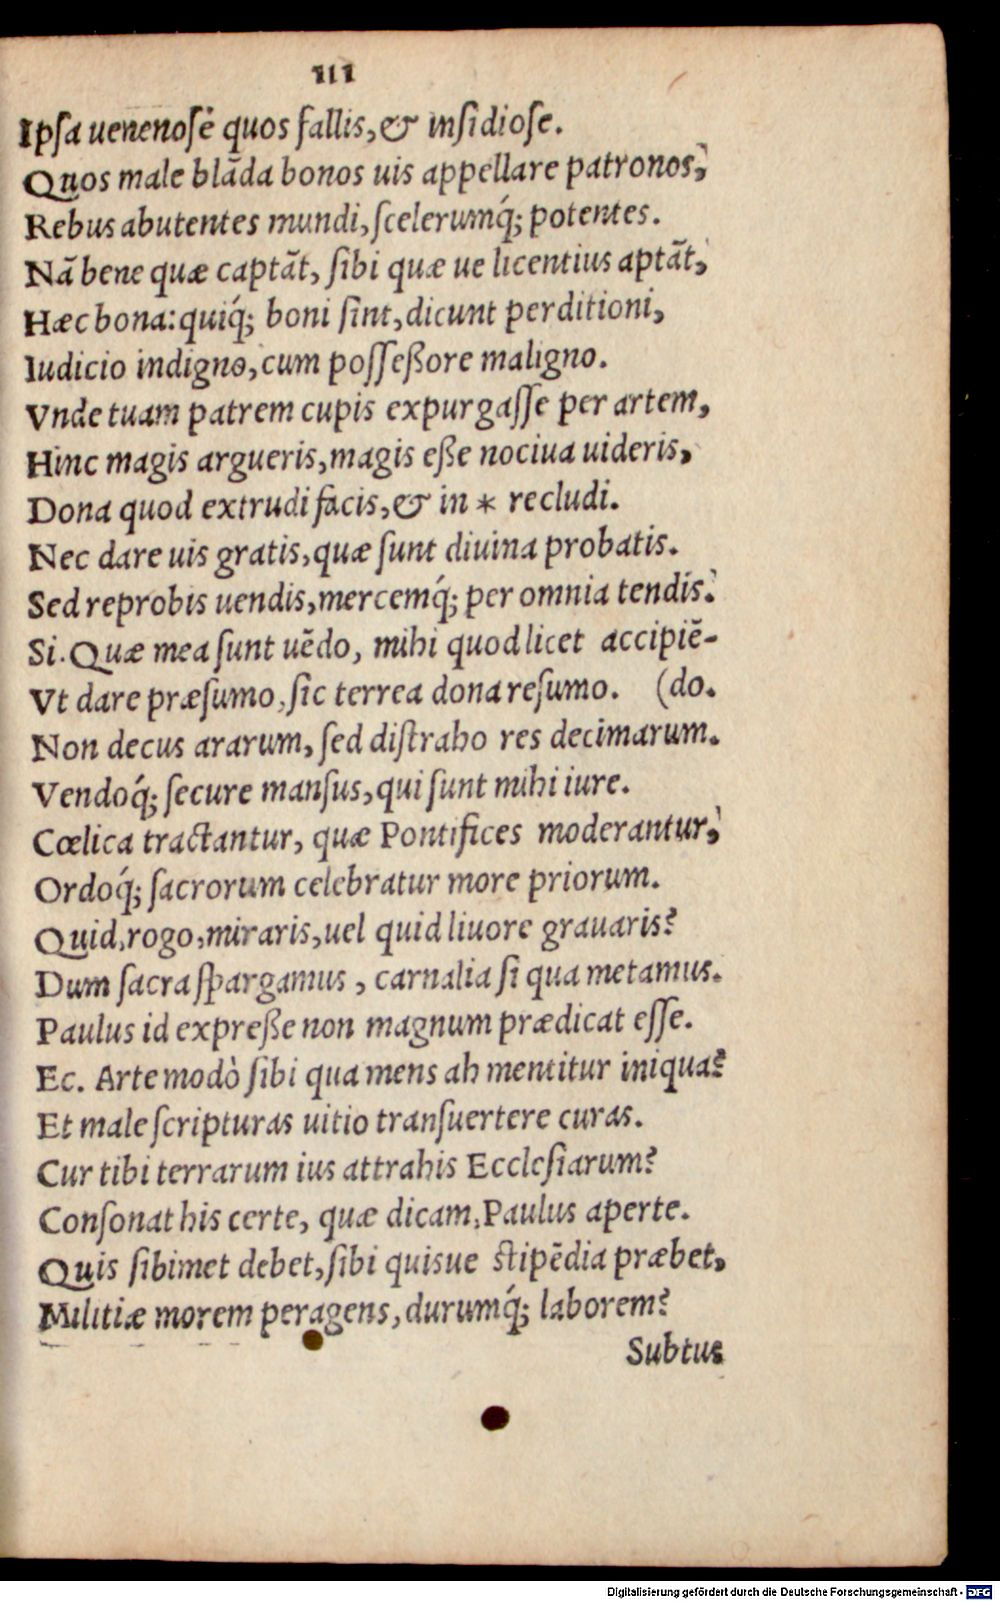 111
Ipsa uenenosè quos fallis,& insidiose.
Quos male blāda bonos uis appellare patronos,
Rebus abutentes mundi, scelerumq́; potentes.
Nā bene quæ captāt, sibi quæ ue licentius aptāt,
Hæc bona: quiq́; boni sint, dicunt perditioni,
Iudicio indigno, cum possessore maligno.
Vnde tuam patrem cupis expurgasse per artem,
Hinc magis argueris, magis esse nociua uideris,
Dona quod extrudi facis,& in * recludi.
Nec dare uis gratis, quæ sunt diuina probatis.
Sed reprobis uendis, mercemq́; per omnia tendis.
Si. Quæ mea sunt uēdo, mihi quod licet accipiē-
Vt dare præsumo, sic terrea dona resumo. (do.
Non decus ararum, sed distraho res decimarum.
Vendoq́; secure mansus, qui sunt mihi iure.
Cœlica tractantur, quæ Pontifices moderantur,
Ordoq́; sacrorum celebratur more priorum.
Quid, rogo, miraris, uel quid liuore grauaris?
Dum sacra spargamus, carnalia si qua metamus.
Paulus id expresse non magnum prædicat esse.
Ec. Arte modò sibi qua mens ah mentitur iniqua?
Et male scripturas uitio transuertere curas.
Cur tibi terrarum ius attrahis Ecclesiarum?
Consonat his certe, quæ dicam, Paulus aperte.
Quis sibimet debet, sibi quisue stipēdia præbet,
Militiæ morem peragens, durumq́; laborem?
Subtus
Digitalisierung gefördert durch die Deutsche Forschungsgemeinschaft - DFG